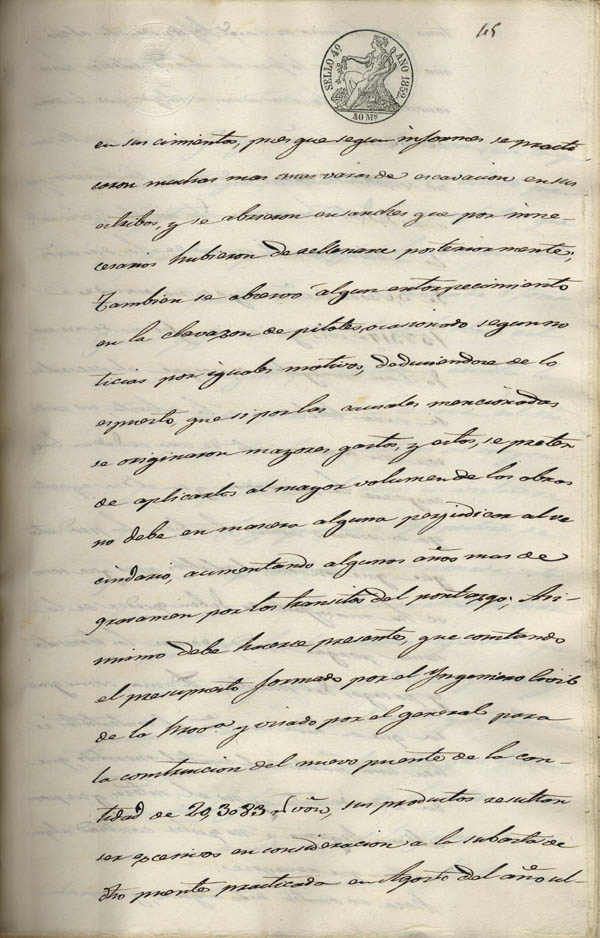 45
SELLO 4º AÑO 1852.
40 Ms
en sus cimientos, pues que segun informes se practi
caron muchas mas varas de escavacion en sus
estribos, y se abrieron ensanches que por inne-
cesarios hubieron de rellenarse posteriormente;
Tambien se observó algun entorpecimiento
en la clavazon de pilotes, ocasionado segun no
ticias por iguales motivos, deduciendose de lo
espuesto, que si por las causales mencionadas
se originaron mayores gastos, y estos, se preten
de aplicarlos al mayor volumen de las obras
no debe en manera alguna perjudicar al ve
cindario, aumentando algunos años mas de
gravamen por los transitos del pontazgo; Asi-
mismo debe hacerse presente, que constando
el presupuesto formado por el Yngeniero Civil
de la Prova y visado por el general para
la construcion del nuevo puente de la can-
tidad de 203083 rs von, sus productos resultan
ser excesivos en consideracion a la subasta de
dho puente practicada en Agosto del año ul-